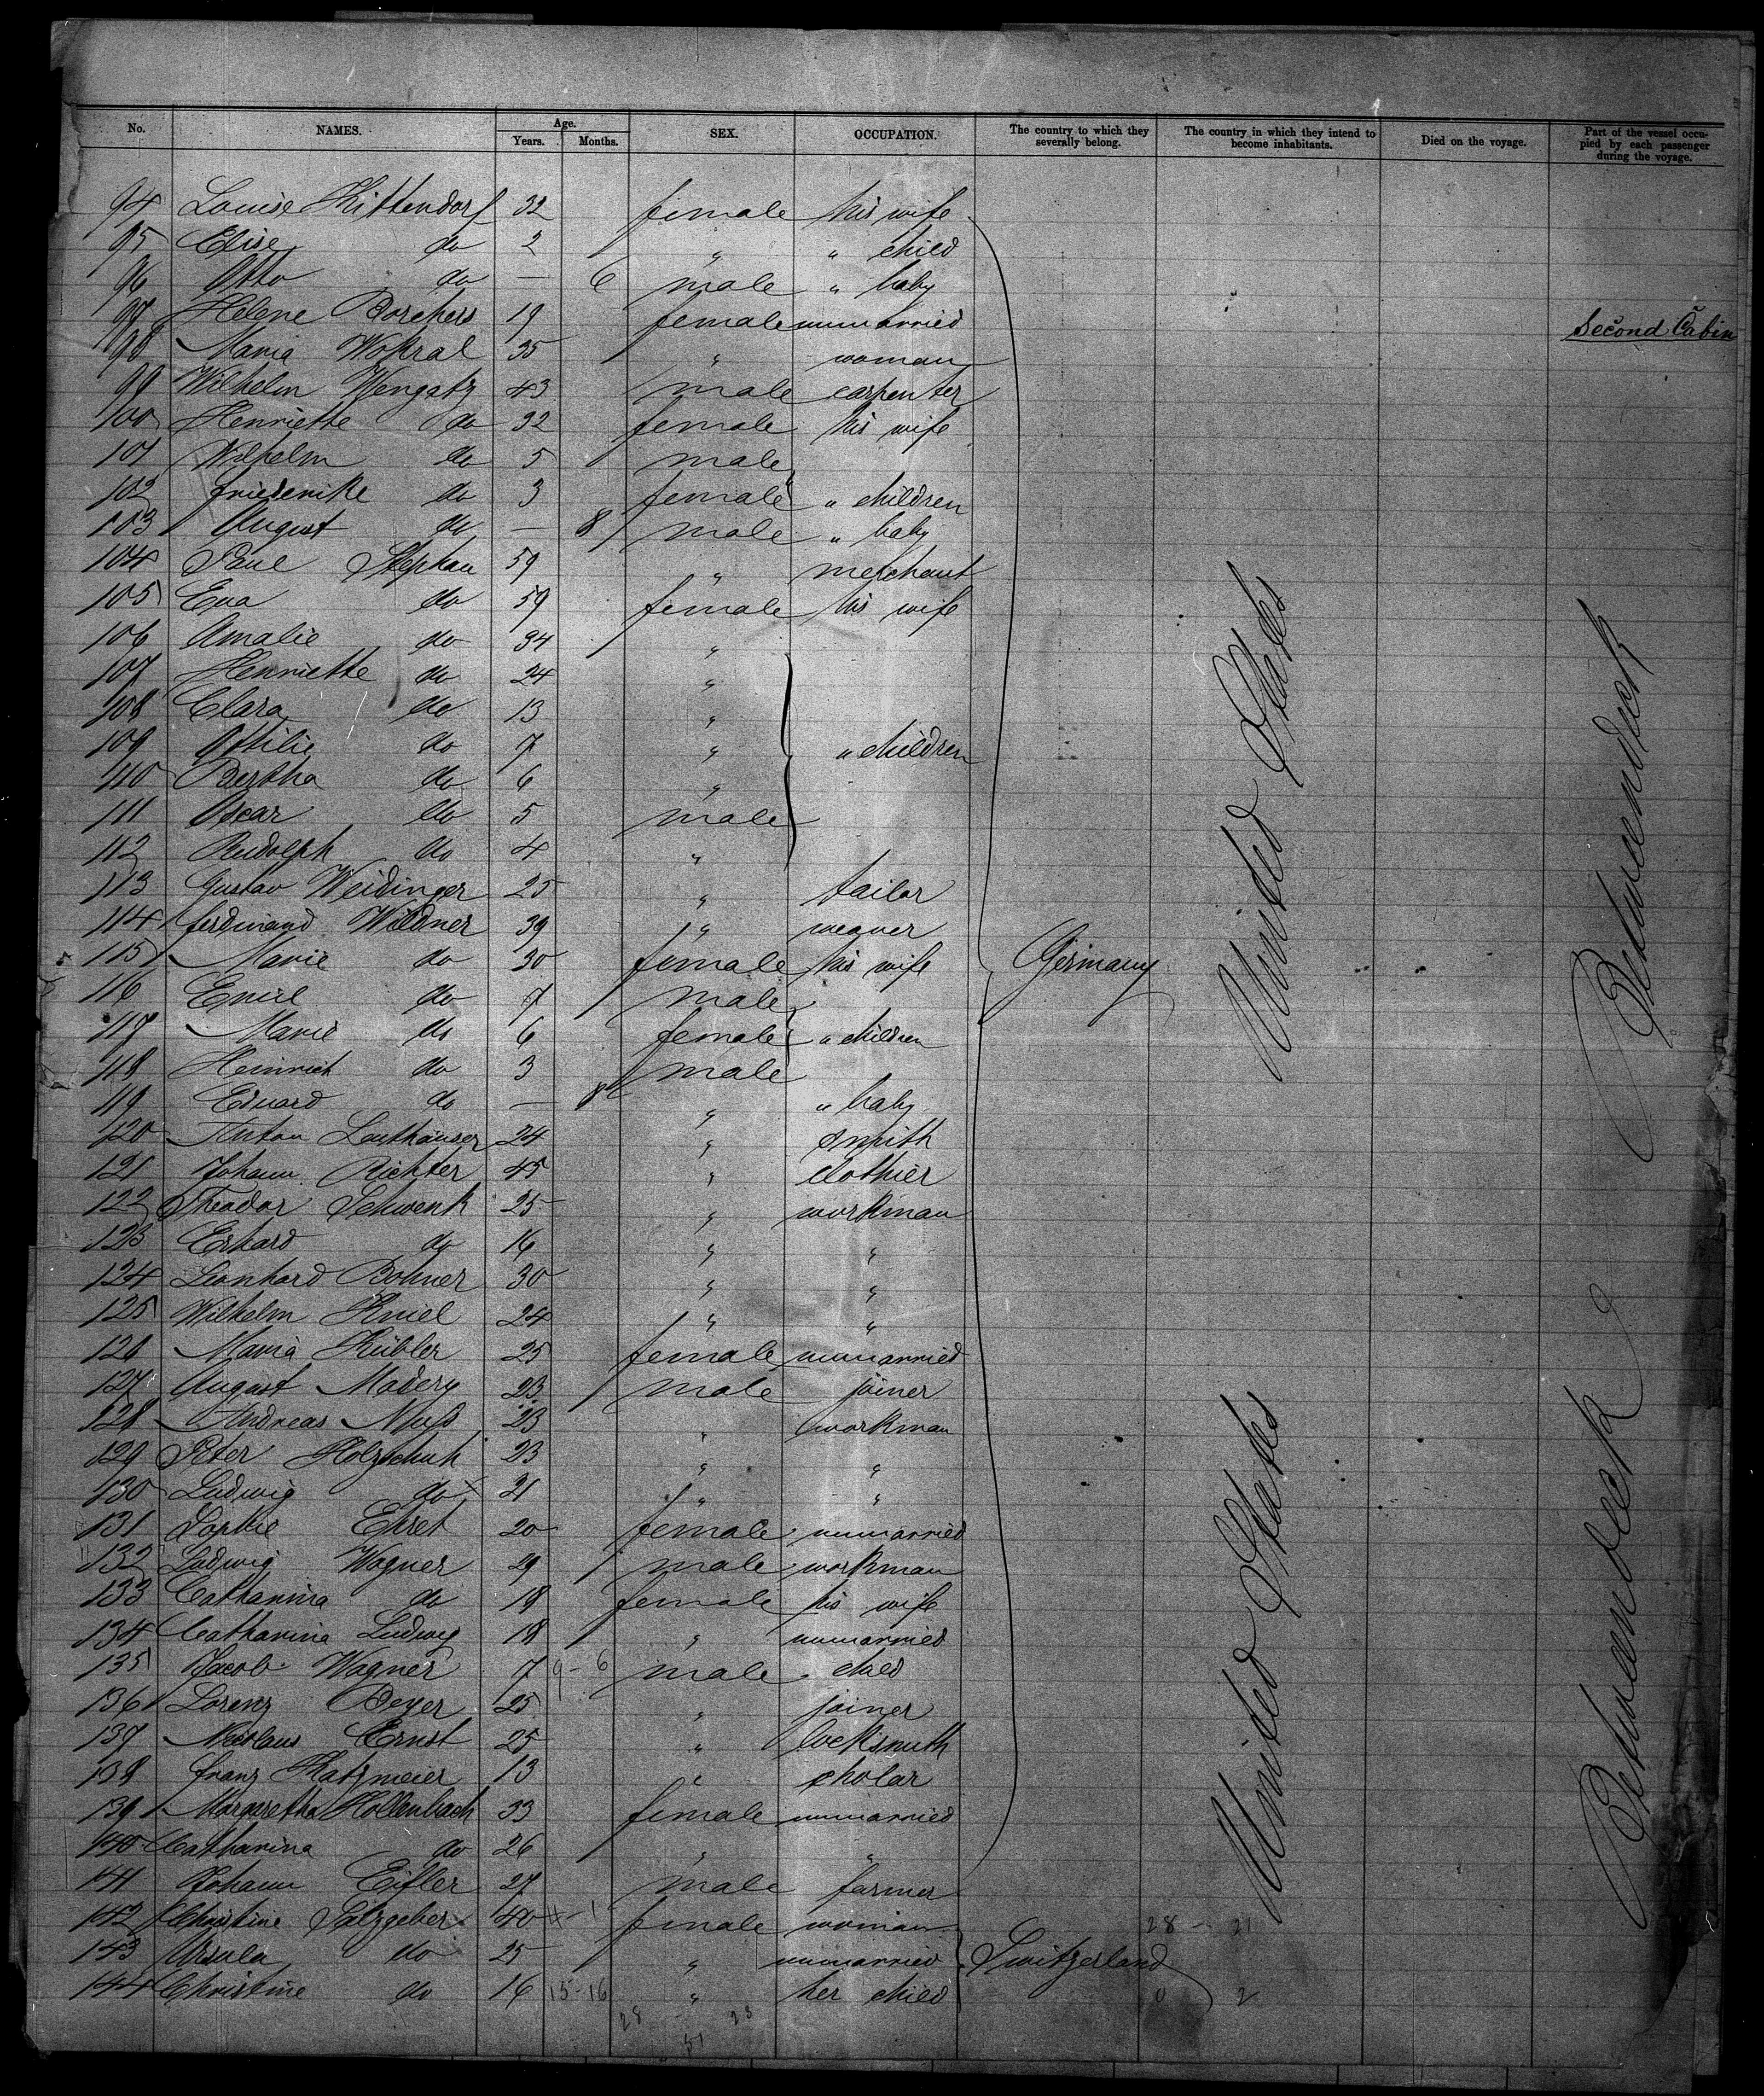 No. NAMES. Age. Years. Months. SEX. OCCUPATION. The country to which they severally belong. The country in which they intend to become inhabitants. Died on the voyage. Part of the vessel occupied by each passenger during the voyage.
94 Louise Kittendorf 32 female his wife
95 Elise do 2 " " child
96 Otto do — 6 male " baby
97 Helene Borchers 19 female unmarried Second Cabin
98 Maria Wokral 35 " woman
99 Wilhelm Wengatz 43 male carpenter
100 Henriette do 32 female his wife
101 Wilhelm do 5 male
102 Friederike do 3 female " children
103 August do — 8 male " baby
104 Paul Stephan 59 " merchant
105 Eva do 59 female his wife
106 Amalie do 34 "
107 Henriette do 24 "
108 Clara do 13 "
109 Ottilie do 7 " " children
110 Bertha do 6 "
111 Oscar do 5 male
112 Rudolph do 4 "
113 Gustav Weidinger 25 " tailor
114 Ferdinand Wildner 39 " weaver
115 Marie do 30 female his wife Germany United States Betweendeck
116 Emil do 7 male
117 Marie do 6 female " children
118 Heinrich do 3 male
119 Eduard do — 8 " " baby
120 Anton Leuthäuser 24 " smith
121 Johann Richter 45 " clothier
122 Theodor Schwenk 25 " workman
123 Erhard do 16 " "
124 Leonhard Bohner 30 " "
125 Wilhelm Kniel 24 " "
126 Maria Kübler 25 female unmarried
127 August Madery 23 male joiner
128 Andreas Muß 23 " workman
129 Peter Holzschuh 23 " "
130 Ludwig do 21 " "
131 Sophie Ehret 20 female unmarried
132 Ludwig Wagner 29 male workman
133 Catharina do 18 female his wife
134 Catharina Ludwig 18 " unmarried
135 Jacob Wagner 7 9-6 male child United States Betweendeck
136 Lorenz Beyer 25 " joiner
137 Nicolaus Ernst 25 " locksmith
138 Franz Katzmeier 13 " scholar
139 Margaretha Hollenbach 33 female unmarried
140 Catharina do 26 " "
141 Johann Eifler 27 male farmer
142 Christine Salzgeber 40 4-1 female woman 28 - 21
143 Ursula do 25 " unmarried Switzerland
144 Christine do 16 15-16 " her child 0 2
28 - 23
51